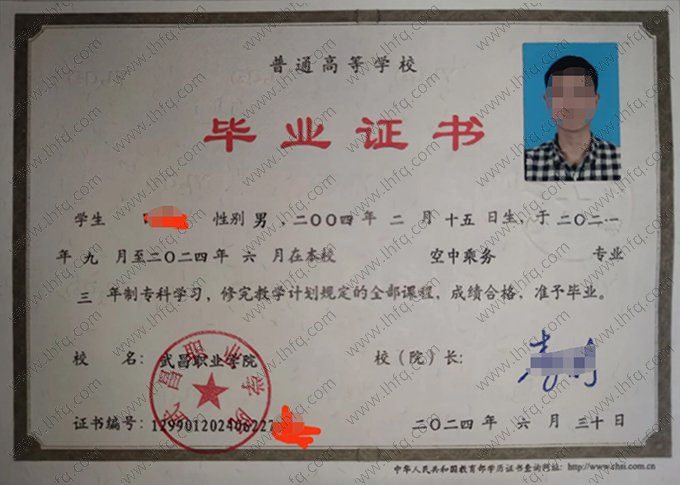 普通高等学校
毕业证书
学生 性别 男，二〇〇四年 二 月 十五 日生，于 二〇二一
年 九 月至 二〇二四年 六 月在本校 空中乘务 专业
三 年制专科学习，修完教学计划规定的全部课程，成绩合格，准予毕业。
校 名：武昌职业学院 校（院）长：
武昌职业学院
证书编号：129901202406227 二〇二四年 六 月 三十 日
中华人民共和国教育部学历证书查询网址：http://www.chsi.com.cn
www.lhfq.com